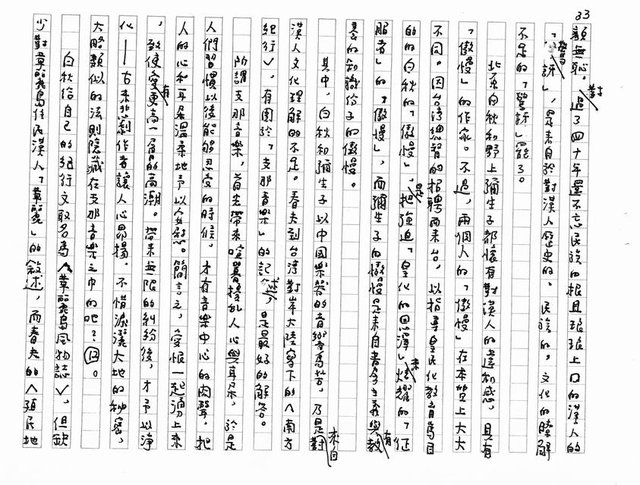 33
顏無恥。過了四十年還不忘民族的根且琅琅上口的漢人的
「驚訝」,是來自於對漢人歷史的、民族的、文化的瞭解
不足的「驚訝」罷了。
北原白秋和野上彌生子都懷有對漢人的違和感,具有
「傲慢」的作家。不過,兩個人的「傲慢」在本質上大大
不同。因台灣總督的招聘而來台,以指導皇民化教育為目
的的白秋的「傲慢」,是把強迫「皇化的恩澤」來炫耀的「征
服者」的「傲慢」,而彌生子的傲慢是來自者今主義與教
養的知識份子的傲慢。
其中,白秋和彌生子以中國樂器的音響為苦,乃是來自對
漢人文化理解的不足。春夫到台灣對岸大陸寫下的〈南方
紀行〉,有關於「支那音樂」的記述,是最好的解答。
所謂支那音樂,首先帶來喧囂擾亂人心與耳朵,於是
人們習慣以後能夠忍受的時候,才有音樂中心的肉聲,把
人的心和耳朵溫柔地予以安慰。簡言之,愛恨一起湧上來
,致使變更有高一層的高潮。帶來無限的糾紛後,才予以淨
化——古來悲劇作者讓人心昂揚,不惜濺灑大地的秘密,
大略類似的法則隱藏在支那音樂之中的吧?
白秋給自己的紀行文取名為〈華麗島風物誌〉,但缺
少對華麗島住民漢人「華麗」的敘述,而春夫的〈殖民地